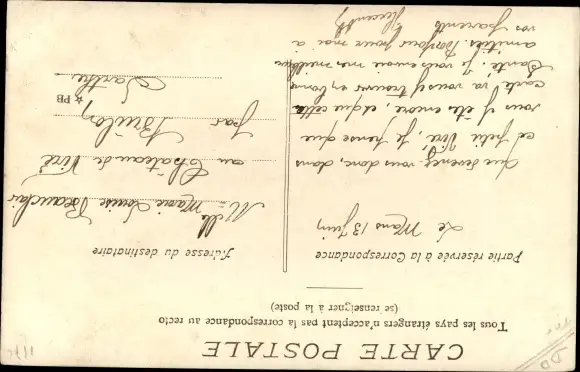 CARTE POSTALE
Tous les pays étrangers n'acceptent pas la correspondance au recto
(se renseigner à la poste)
Partie réservée à la Correspondance
Adresse du destinataire
Le Mans 13 Juin
Que devenez vous donc, dans
cet petit Viré, je pense que
vous y êtes encore, et que cette
carte va vous y trouver en bonne
Santé. je vous envoie mes meilleures
amitiés. Bonjour pour moi à
vos parents
Melle Marie Louise Beauclair
au Château de Viré
par Brûlon
Sarthe
★ PB
DD